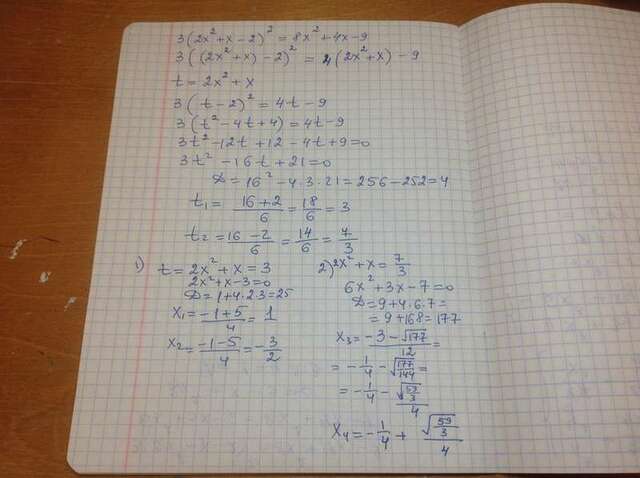 3(2x²+x-2)² = 8x²+4x-9
3((2x²+x)-2)² = 4(2x²+x)-9
t=2x²+x
3(t-2)²=4t-9
3(t²-4t+4)=4t-9
3t²-12t+12-4t+9=0
3t²-16t+21=0
D=16²-4·3·21=256-252=4
t₁= (16+2)/6 = 18/6 = 3
t₂= (16-2)/6 = 14/6 = 7/3
1) t=2x²+x=3
2x²+x-3=0
D=1+4·2·3=25
x₁= (-1+5)/4 = 1
x₂= (-1-5)/4 = -3/2
2) 2x²+x=7/3
6x²+3x-7=0
D=9+4·6·7=
=9+168=177
x₃= (-3-√177)/12 =
= -1/4 - √(177/144) =
= -1/4 - √(59/3)/4
x₄= -1/4 + √(59/3)/4